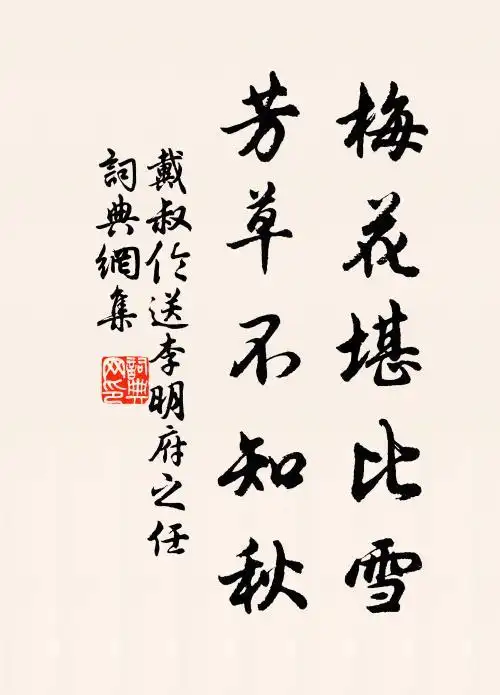 梅花堪比雪
芳草不知秋
戴叔伦送李明府之任
詞典網集
詞典网印